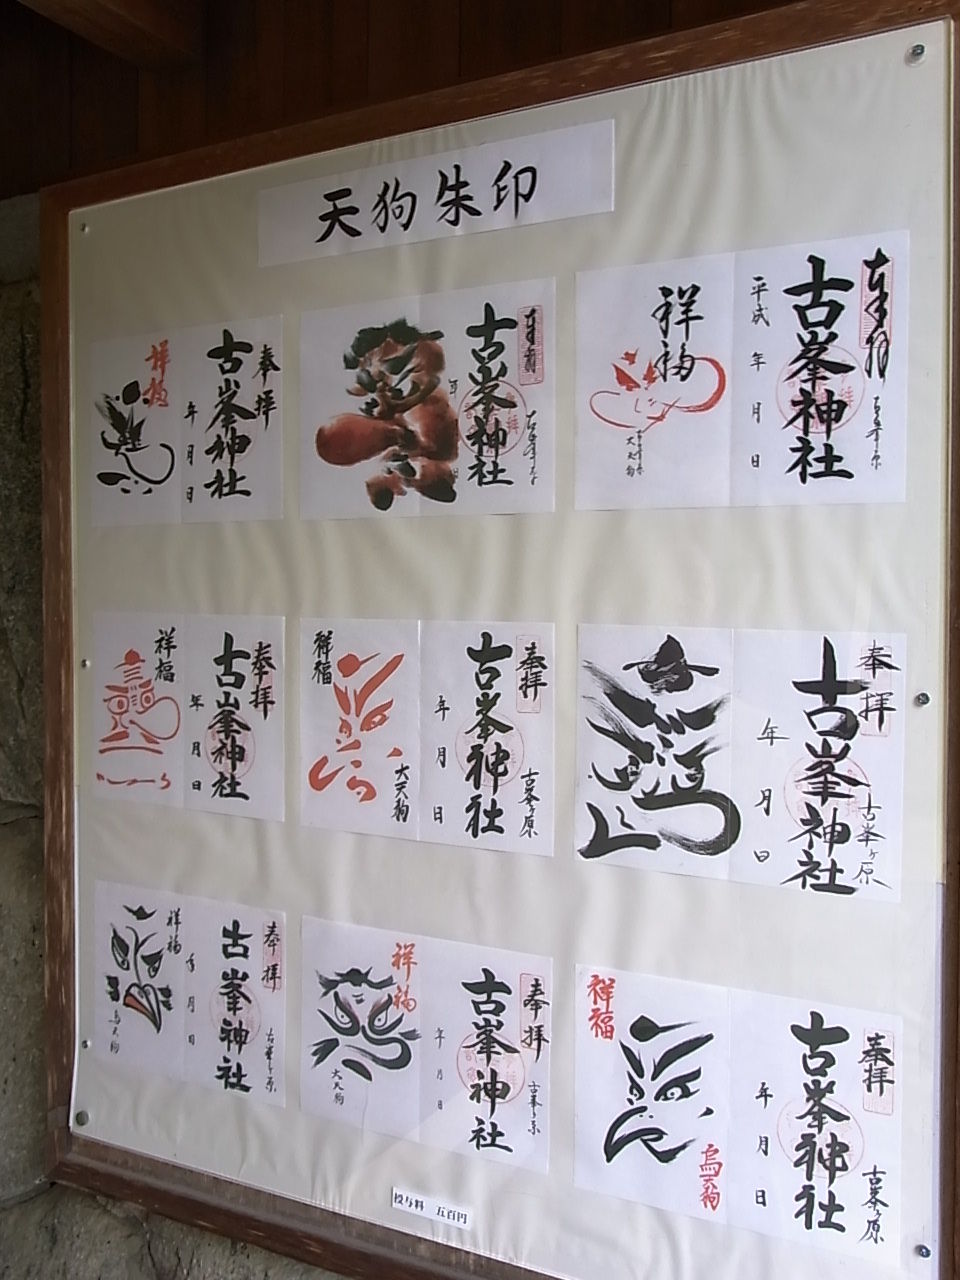 天狗朱印
奉拝
古峯神社
年 月 日
祥福
古峯神社
奉拝
古峯神社
平成 年 月 日
祥福
大天狗
奉拝
古峯神社
年 月 日
祥福
奉拝
古峯ヶ原
古峯神社
年 月 日
祥福
大天狗
奉拝
古峯ヶ原
古峯神社
年 月 日
奉拝
古峯ヶ原
古峯神社
年 月 日
祥福
烏天狗
奉拝
古峯ヶ原
古峯神社
年 月 日
祥福
大天狗
奉拝
古峯ヶ原
古峯神社
年 月 日
祥福
烏天狗
授与料 五百円